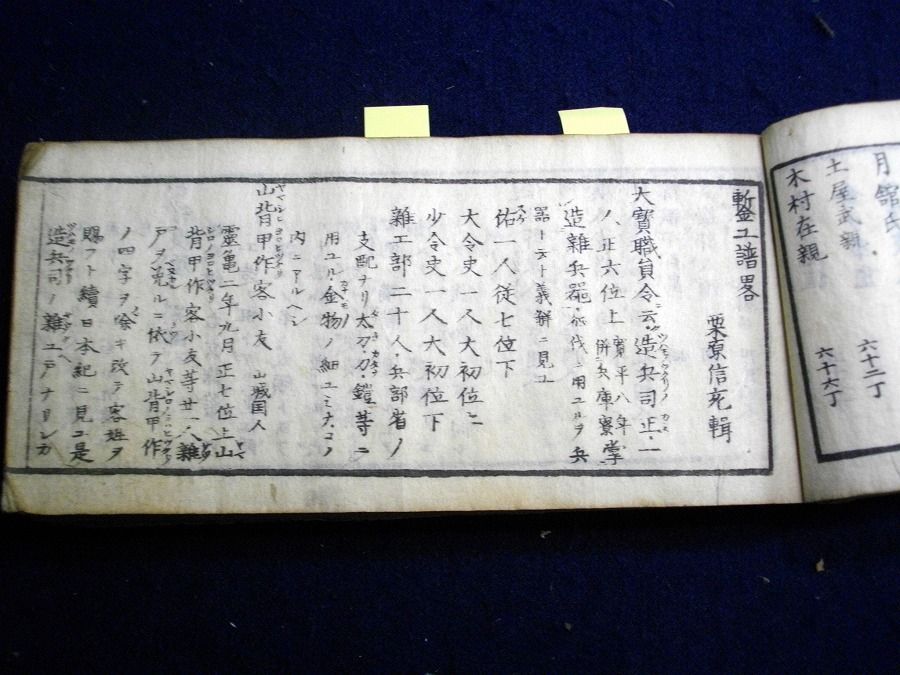 月舘氏 六十二丁
土屋武親
木村在親 六十六丁
鏨工譜畧
栗原信充輯
大寳職員令云造兵司正一
人正六位上 寛平八年併兵庫寮 掌
造雜兵器 征伐ニ用ユルヲ兵
器ト云ト義解ニ見ユ
佑一人従七位下
大令史一人大初位上
少令史一人大初位下
雜工部二十人兵部省ノ
支配ナリ太刀刀鎧等ニ
用ユル金物ノ細工ミナコノ
内ニアルヘシ
山背甲作客小友 山城国人
霊亀二年九月正七位上山
背甲作客小友等廿一人雜
戸ヲ免ルニ依テ山背甲作
ノ四字ヲ除キ改テ客姓ヲ
賜フト續日本紀ニ見ユ是
造兵司ノ雜工戸ナリシカ